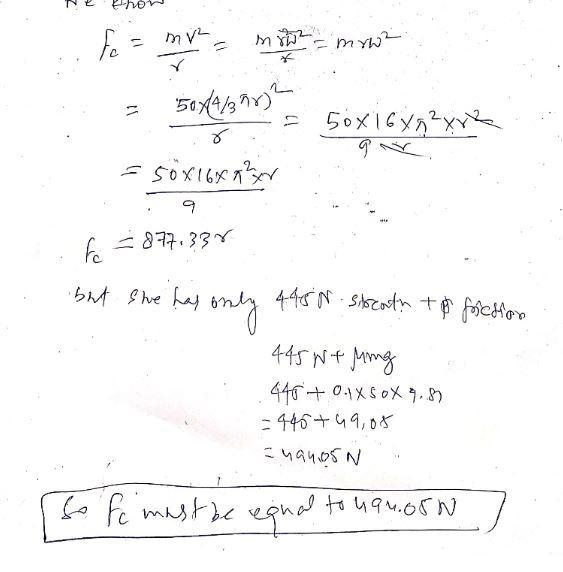 we know
Fc = mv²/r = mr²ω²/r = mrω²
= 50×(4/3 πr)²/r = 50×16×π²×r²/9r
= 50×16×π²×r/9
Fc = 877.33r
but she has only 445N strength + friction
445 N + μmg
445 + 0.1×50×9.81
= 445 + 49.05
= 494.05 N
So Fc must be equal to 494.05 N